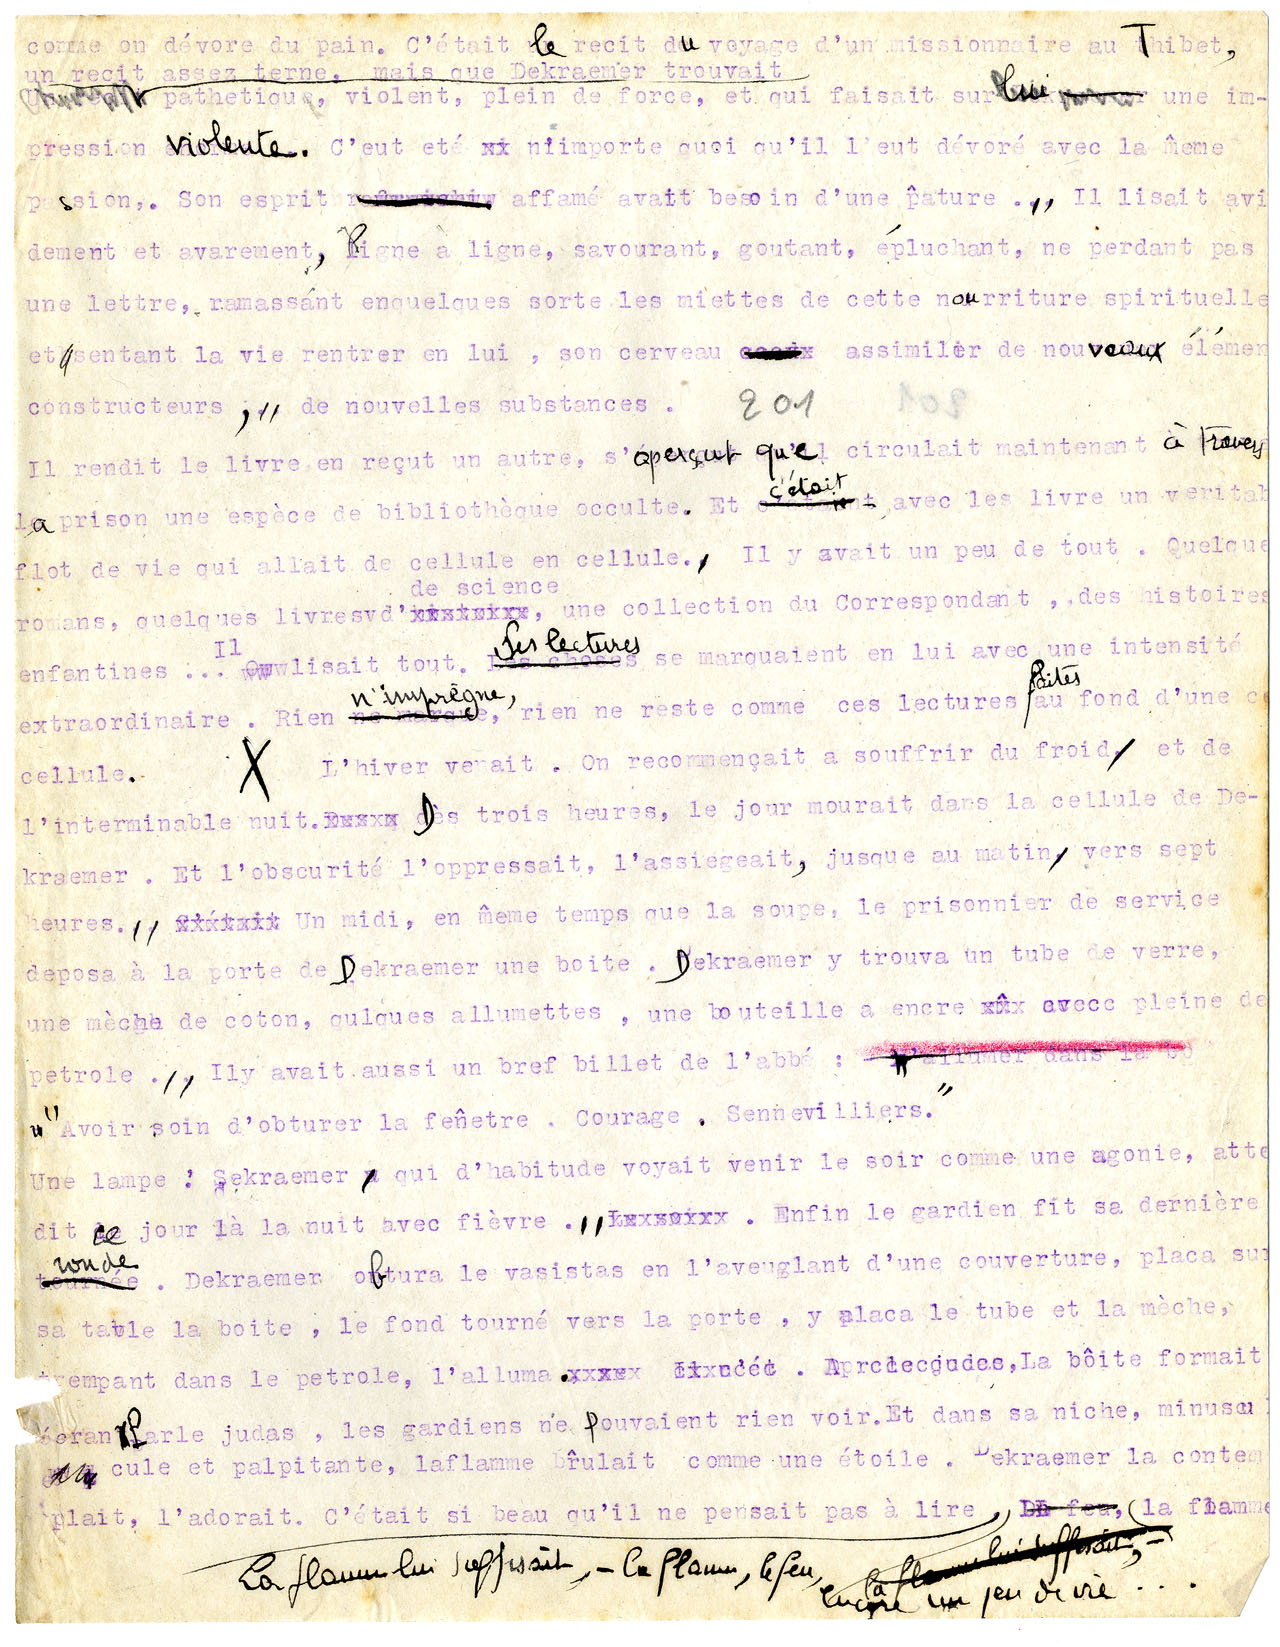 comme on dévore du pain. C'était le recit du voyage d'un missionnaire au Thibet,
un recit assez terne, mais que Dekraemer trouvait
pathetique, violent, plein de force, et qui faisait sur lui une im-
pression violente. C'eut eté xx n'importe quoi qu'il l'eut dévoré avec la même
passion,. Son esprit affamé avait besoin d'une pâture .,, Il lisait avi
dement et avarement, ligne à ligne, savourant, goutant, épluchant, ne perdant pas
une lettre, ramassant enquelques sorte les miettes de cette nourriture spirituelle
et sentant la vie rentrer en lui , son cerveau assimiler de nouveaux élémen
constructeurs ,,, de nouvelles substances . 201
Il rendit le livre,en reçut un autre, s'aperçut que circulait maintenant à travers
la prison une espèce de bibliothèque occulte. Et c'était avec les livre un veritab
flot de vie qui allait de cellule en cellule., Il y avait un peu de tout . Quelque
de science
romans, quelques livresvd'xxxxxxxx, une collection du Correspondant , des histoires
Il Ses lectures
enfantines ... lisait tout. Les choses se marquaient en lui avec une intensité
n'imprègne, faites
extraordinaire . Rien ne marque, rien ne reste comme ces lectures au fond d'une ce
cellule. X L'hiver venait . On recommençait a souffrir du froid, et de
l'interminable nuit. Dès trois heures, le jour mourait dans la cellule de De-
kraemer . Et l'obscurité l'oppressait, l'assiegeait, jusque au matin, vers sept
heures.,, Un midi, en même temps que la soupe, le prisonnier de service
deposa à la porte de Dekraemer une boite . Dekraemer y trouva un tube de verre,
une mèche de coton, qulques allumettes , une bouteille a encre pleine de
petrole .,, Ily avait aussi un bref billet de l'abbé : N'allumer dans la bo
"Avoir soin d'obturer la fenêtre . Courage . Sennevilliers."
Une lampe ! Dekraemer qui d'habitude voyait venir le soir comme une agonie, atte
dit ce jour là la nuit avec fièvre .,, . Enfin le gardien fit sa dernière
ronde
tournée . Dekraemer obtura le vasistas en l'aveuglant d'une couverture, placa sur
sa table la boite , le fond tourné vers la porte , y placa le tube et la mèche,
trempant dans le petrole, l'alluma. . La bôite formait
écran Parle judas , les gardiens ne pouvaient rien voir.Et dans sa niche, minusou
cule et palpitante, laflamme brûlait comme une étoile . Dekraemer la contem
plait, l'adorait. C'était si beau qu'il ne pensait pas à lire , Le feu, la flamme
La flamme lui suffisait, – la flamme, le feu, la flamme lui suffisait, –
encore un peu de vie ...